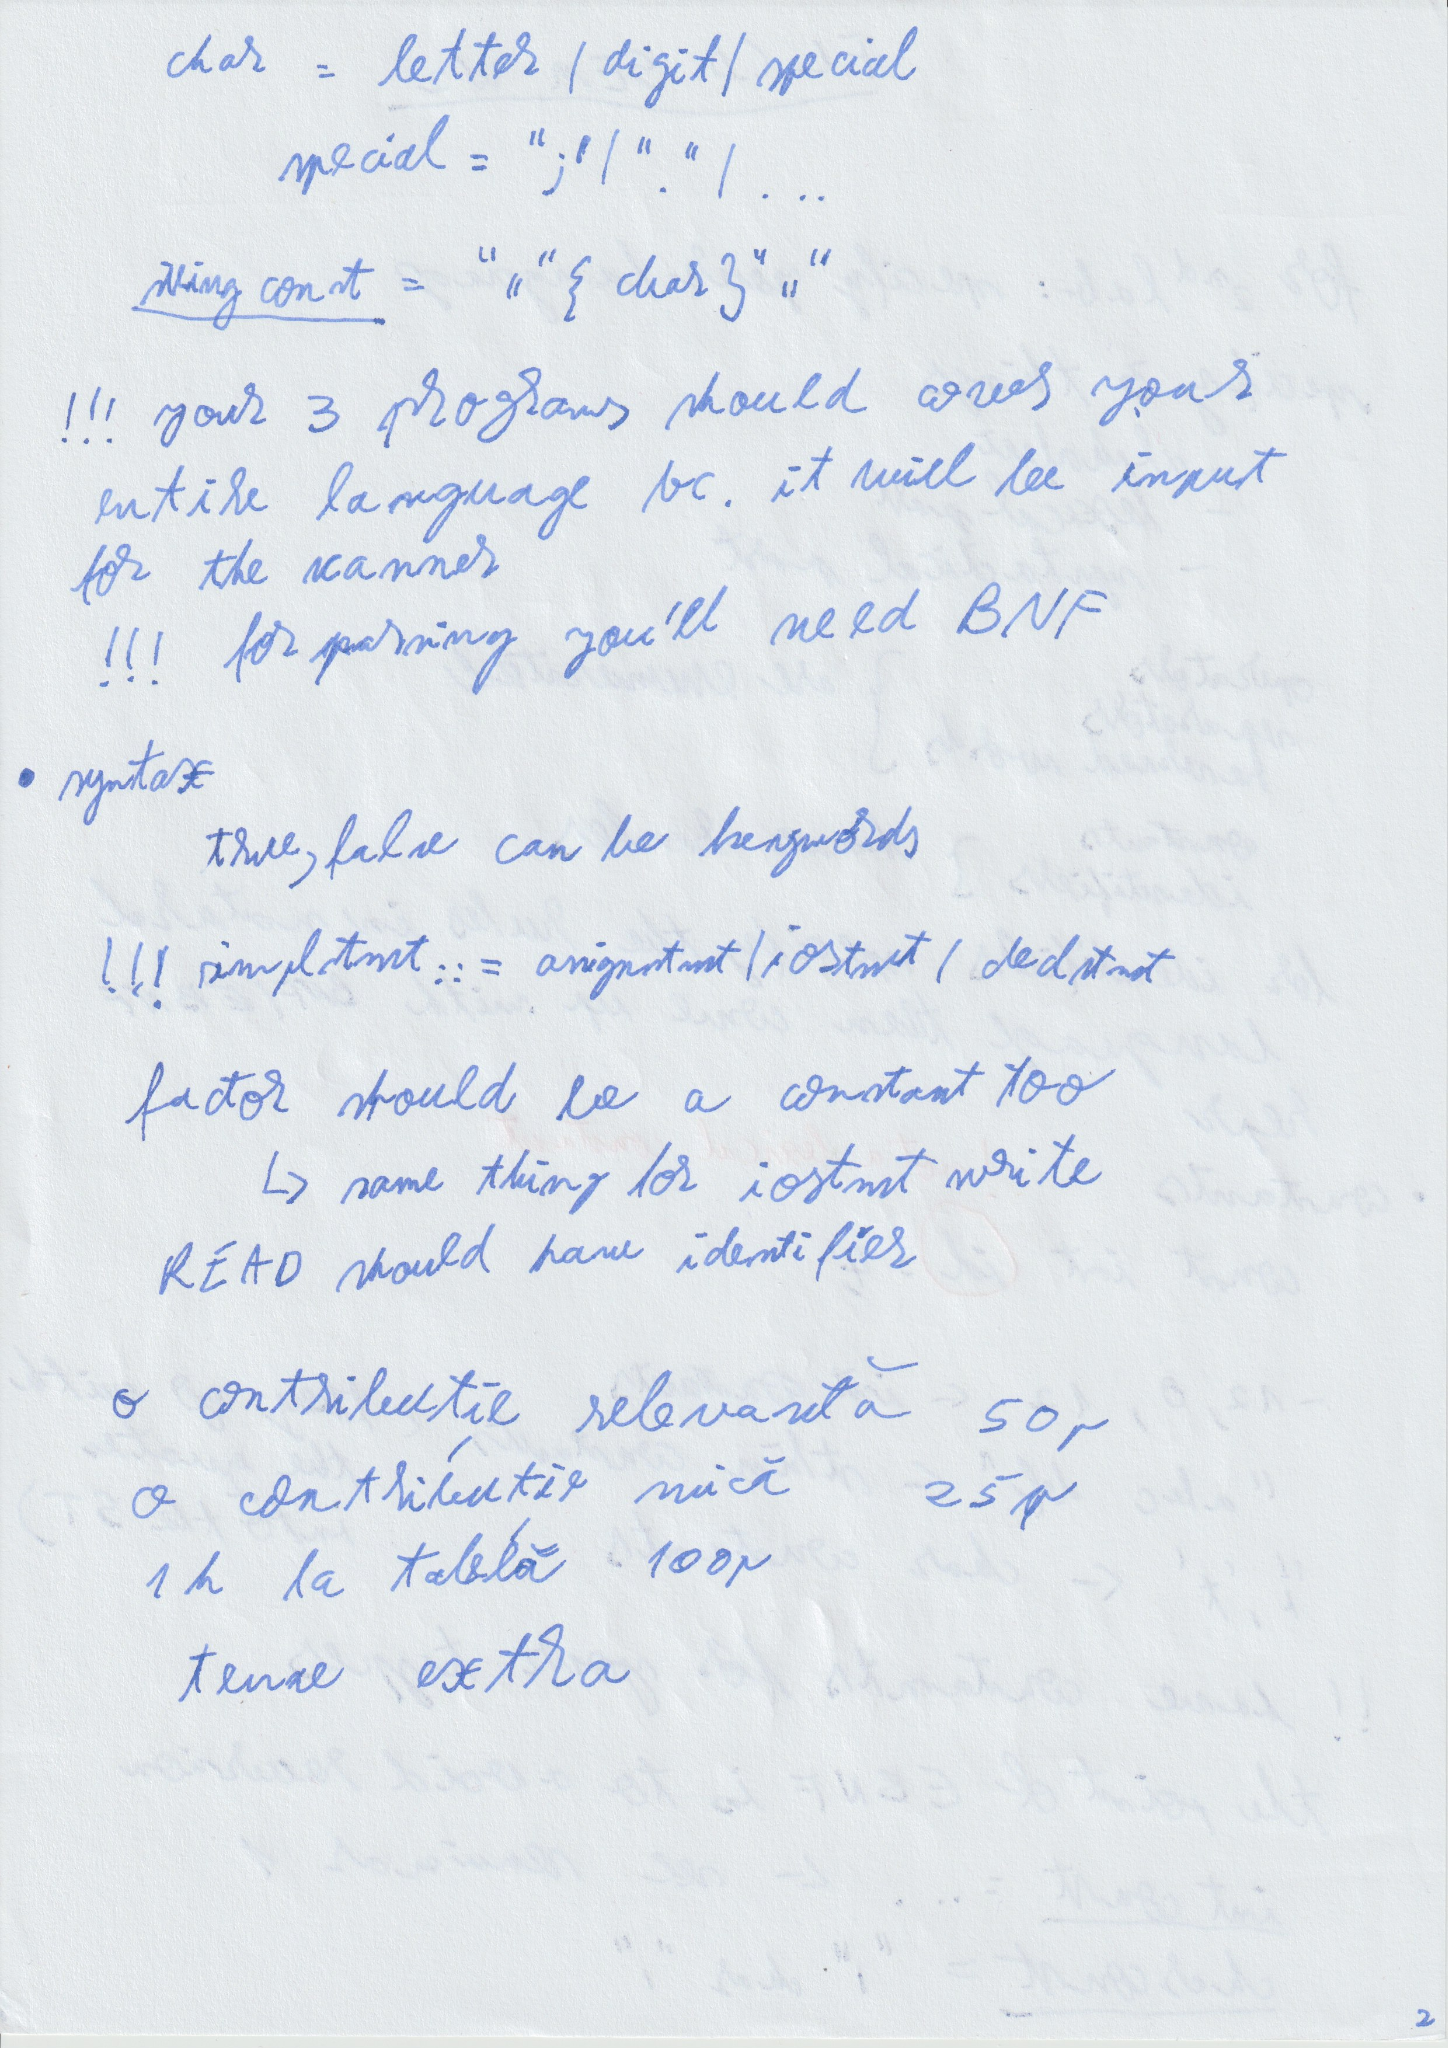 char = letter | digit | special
special = ";" | "." | . ..
string const = """ { char } """
!!! your 3 programs should cover your
entire language bc. it will be input
for the scanner
!!! for parsing you'll need BNF
• syntax
true, false can be keywords
!!! simplstmt ::= assignstmt | iostmt | declstmt
factor should be a constant too
↳ same thing for iostmt write
READ should have identifier
o contribuție relevantă 50p
o contribuție mică 25p
1h la tablă 100p
teme extra
2